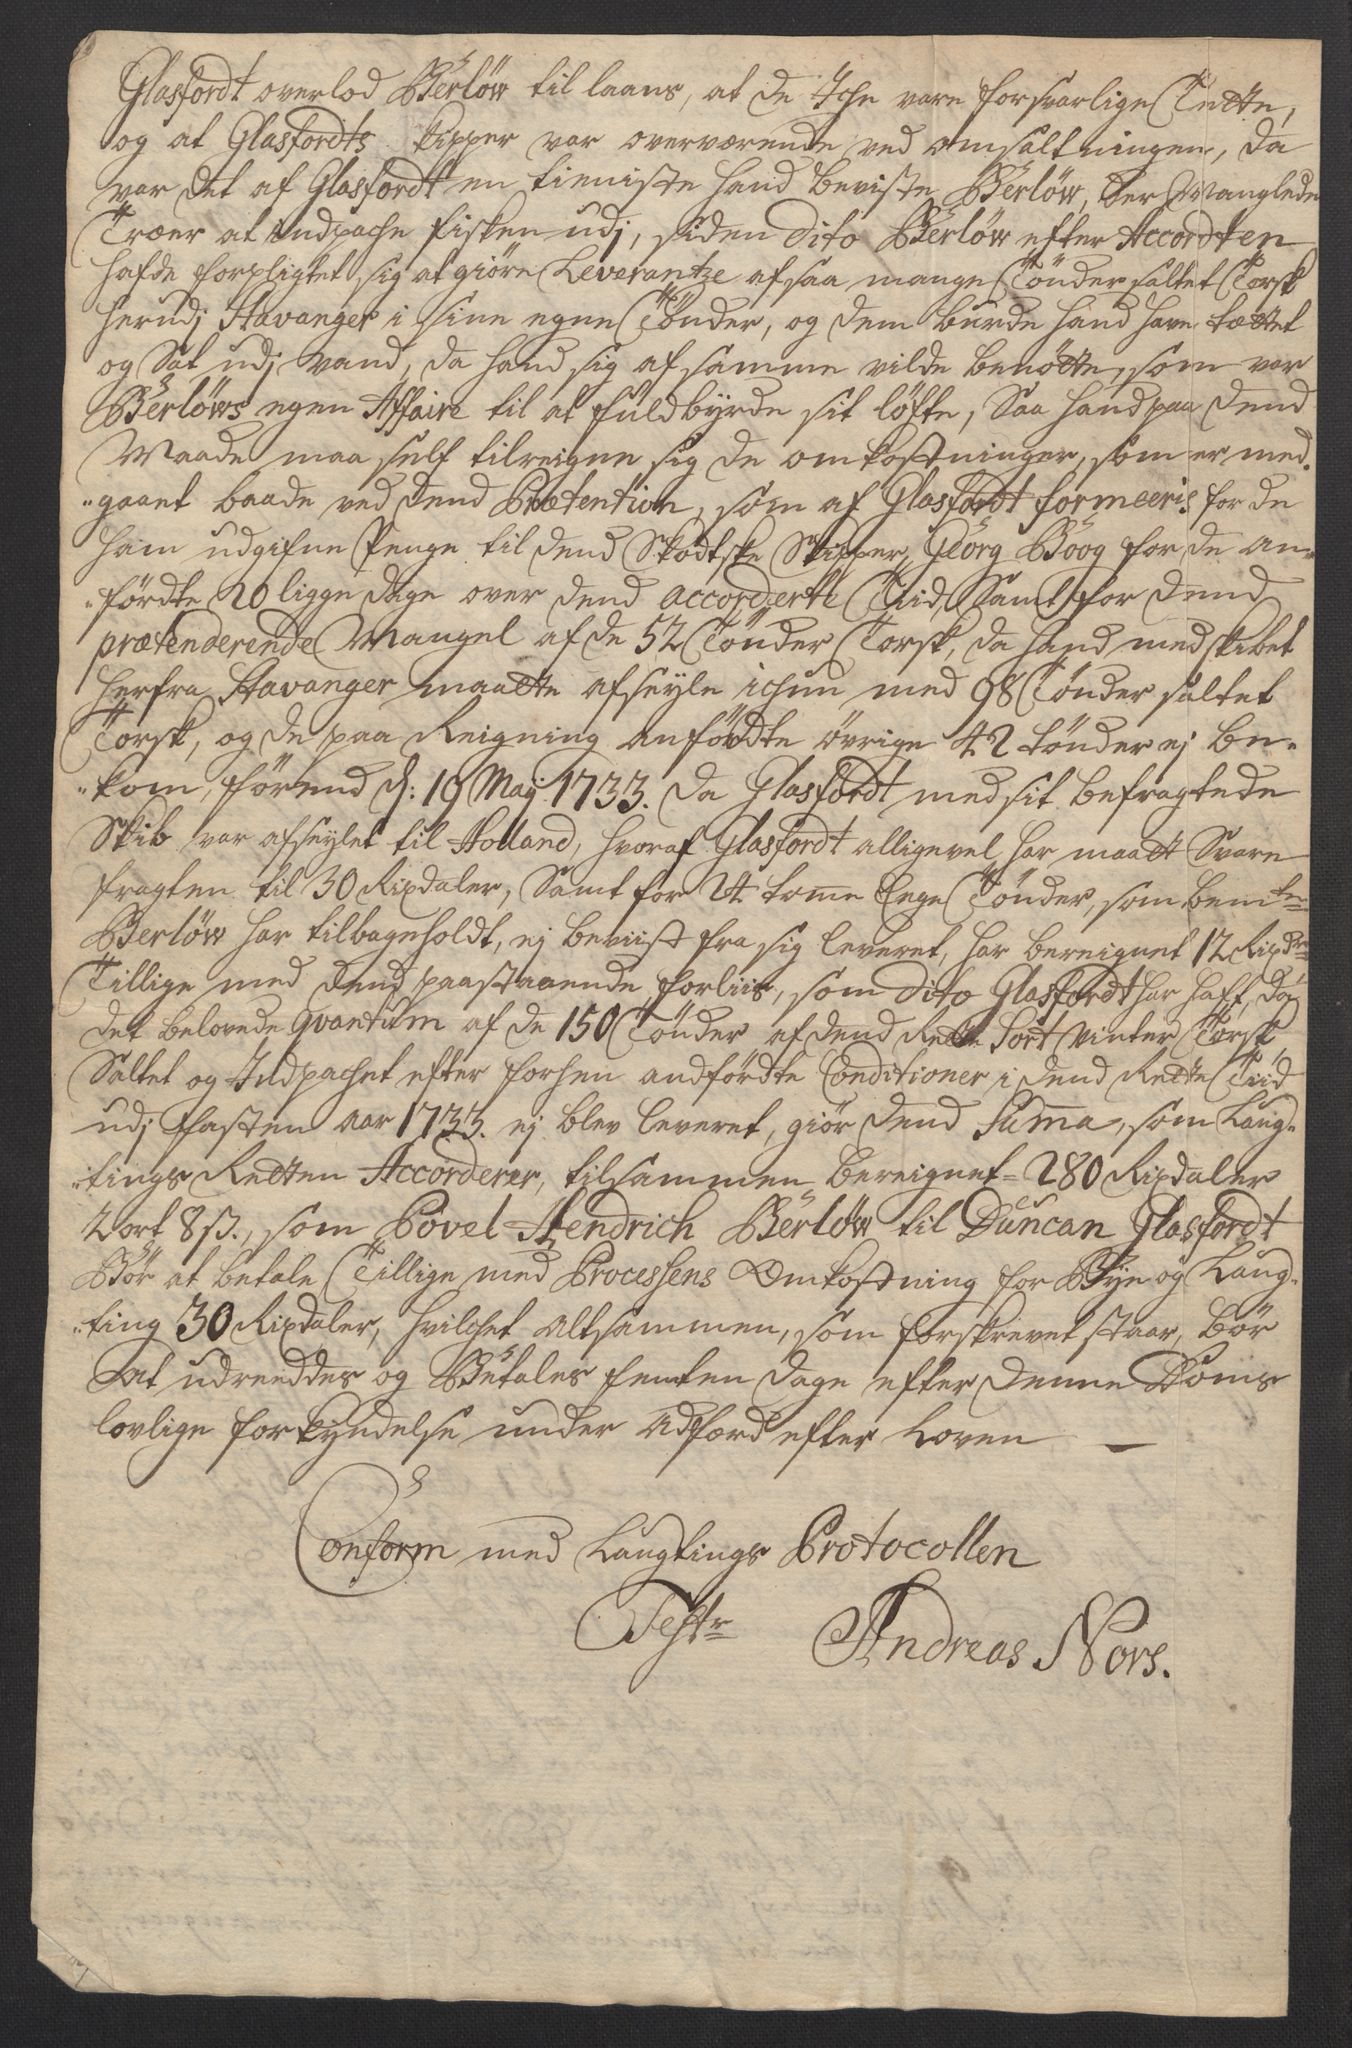 Glasfordt overlod Berlöw til laans, at de Iche vare forsvarlige Tette,
og at Glasfordts Kipper var overværende ved omsaltningen, da
var det af Glasfordt en tieniste hand beviste Berlöw, der Manglede
Træer at indpache fisken udj, siden dito Berlöw efter Accordten
hafde forpligtet sig at giöre Leverantze af saa mange Tönder saltet Torsk
herudj Stavanger i sine egne Tönder, og dem burde hand have tættet
og Sat udj Vand, da hand sig af samme vilde benötte, som var
Berlöws egen Affaire til at fuldbyrde sit löfte, Saa hand paa dend
Maade maa self tilreigne sig de omkostninger, som er med-
gaaet baade ved dend Prætention, som af Glasfordt formeeris for de
ham udgifne Penge til dend Skodtske Skipper, Georg Boog for de an-
fördte 20 ligge dage over dend accorderte Tiid, Samt for dend
prætenderende Mangel af de 52 Tönder Torsk, da hand med skibet
herfra Stavanger maatte afseyle ichun med 98 Tönder saltet
Torsk, og de paa Reigning anfördte övrige 42 tönder ej be-
kom, förend d: 19 Maj 1733. da Glasfordt med sit befragtede
Skib var afseylet til Holland, hvoraf Glasfordt alligevel har maatt Svare
fragten til 30 Rixdaler, Samt for 24 tome Ege Tönder, som bemte
Berlöw har tilbageholdt, ej beviist fra sig leveret, har bereignet 12 Rixdr
Tillige med dend paastaaende forliis, som dito Glasfordt har haft, da
det belovede Qvantum af de 150 Tönder af dend Rette Sort Vinter Torsk
Saltet og Indpachet efter forhen andfördte Conditioner i dend Rette Tiid
udj fasten aar 1733. ej blev leveret, giör dend Suma, som Laug-
tings Retten Accorderer, tilsammen bereignet 280 Rixdaler
2 ort 8 s., som Povel Hendrich Berlöw til Duncan Glasfordt
Bör at betale Tillige med Processens Omkostning for Bye og Laug-
ting 30 Rixdaler, hvilchet altsammen, som forskrevet staar, bör
At udreeddes og Betales femten dage efter denne Doms
lovlige forkyndelse under Adfærd efter Loven
Conform med Laugtings Protocollen
Testr
Andreas Nors.